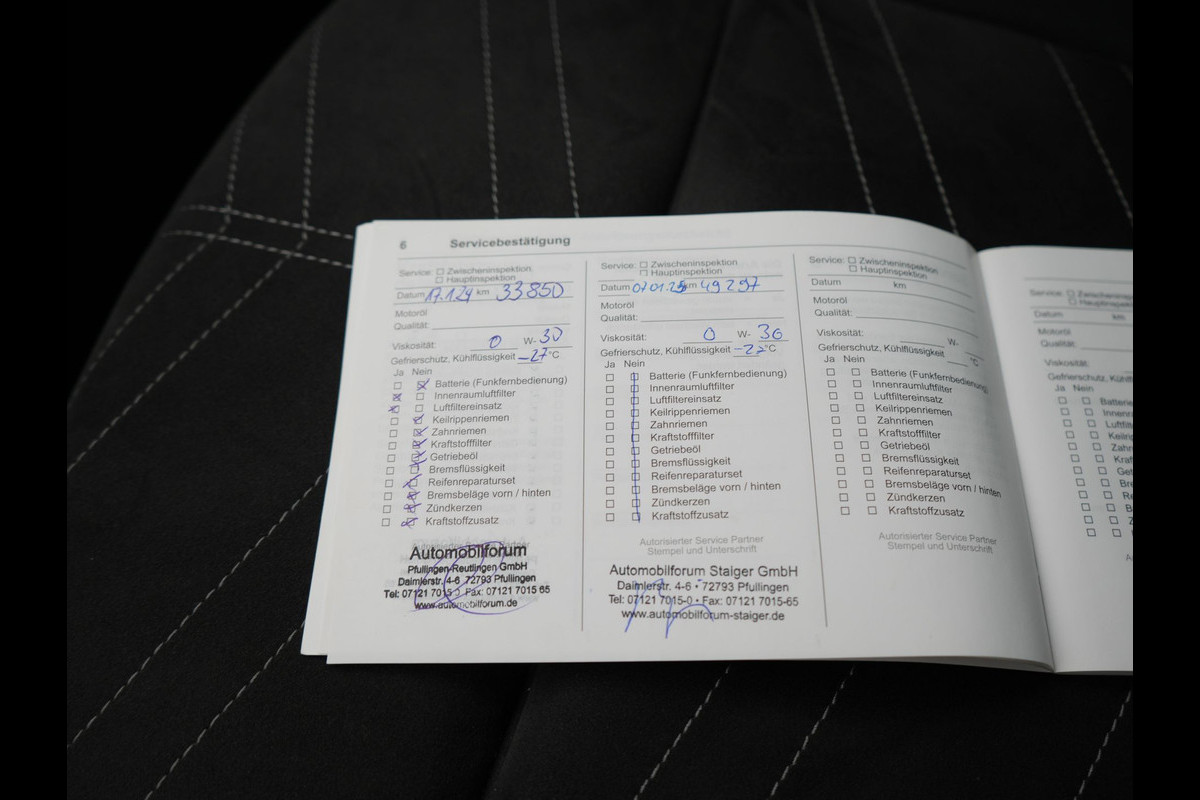 6 Servicebestätigung
Service: □ Zwischeninspektion
□ Hauptinspektion
Datum 17.1.24 km 33850
Motoröl
Qualität:
Viskosität: 0 W- 30
Gefrierschutz, Kühlflüssigkeit -27 °C
Ja Nein
Batterie (Funkfernbedienung)
Innenraumluftfilter
Luftfiltereinsatz
Keilrippenriemen
Zahnriemen
Kraftstofffilter
Getriebeöl
Bremsflüssigkeit
Reifenreparaturset
Bremsbeläge vorn / hinten
Zündkerzen
Kraftstoffzusatz
Automobilforum
Pfullingen-Reutlingen GmbH
Daimlerstr. 4-6 72793 Pfullingen
Tel: 07121 7015 0 Fax: 07121 7015 65
www.automobilforum.de
Service: □ Zwischeninspektion
□ Hauptinspektion
Datum 07.01.25 km 49297
Motoröl
Qualität:
Viskosität: 0 W- 30
Gefrierschutz, Kühlflüssigkeit -27 °C
Ja Nein
Batterie (Funkfernbedienung)
Innenraumluftfilter
Luftfiltereinsatz
Keilrippenriemen
Zahnriemen
Kraftstofffilter
Getriebeöl
Bremsflüssigkeit
Reifenreparaturset
Bremsbeläge vorn / hinten
Zündkerzen
Kraftstoffzusatz
Autorisierter Service Partner
Stempel und Unterschrift
Automobilforum Staiger GmbH
Daimlerstr. 4-6 • 72793 Pfullingen
Tel: 07121 7015-0 • Fax: 07121 7015-65
www.automobilforum-staiger.de
Service: □ Zwischeninspektion
□ Hauptinspektion
Datum km
Motoröl
Qualität:
Viskosität: W-
Gefrierschutz, Kühlflüssigkeit °C
Ja Nein
Batterie (Funkfernbedienung)
Innenraumluftfilter
Luftfiltereinsatz
Keilrippenriemen
Zahnriemen
Kraftstofffilter
Getriebeöl
Bremsflüssigkeit
Reifenreparaturset
Bremsbeläge vorn / hinten
Zündkerzen
Kraftstoffzusatz
Autorisierter Service Partner
Stempel und Unterschrift
Service: □
Datum km
Motoröl
Qualität:
Viskosität:
Gefrierschutz,
Ja Nein